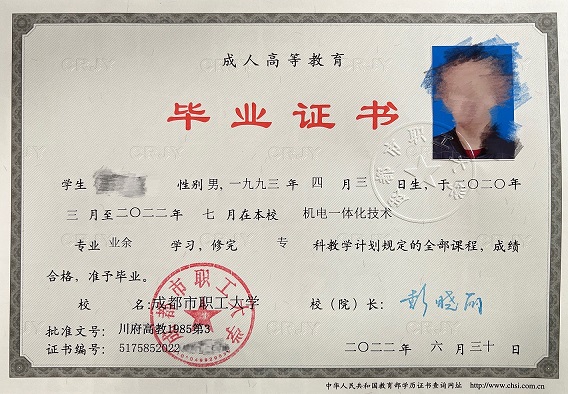 成人高等教育
毕业证书
学生 性别 男，一九九三年 四 月 三 日生，于二〇二〇年
三 月至二〇二二年 七 月在本校 机电一体化技术
专业 业余 学习，修完 专 科教学计划规定的全部课程，成绩
合格，准予毕业。
校 名：成都市职工大学 校（院）长：彭晓丽
批准文号：川府高教1985第3
证书编号：5175852022 二〇二二年 六 月三十日
中华人民共和国教育部学历证书查询网址 http://www.chsi.com.cn
成都市职工大学
CRJY